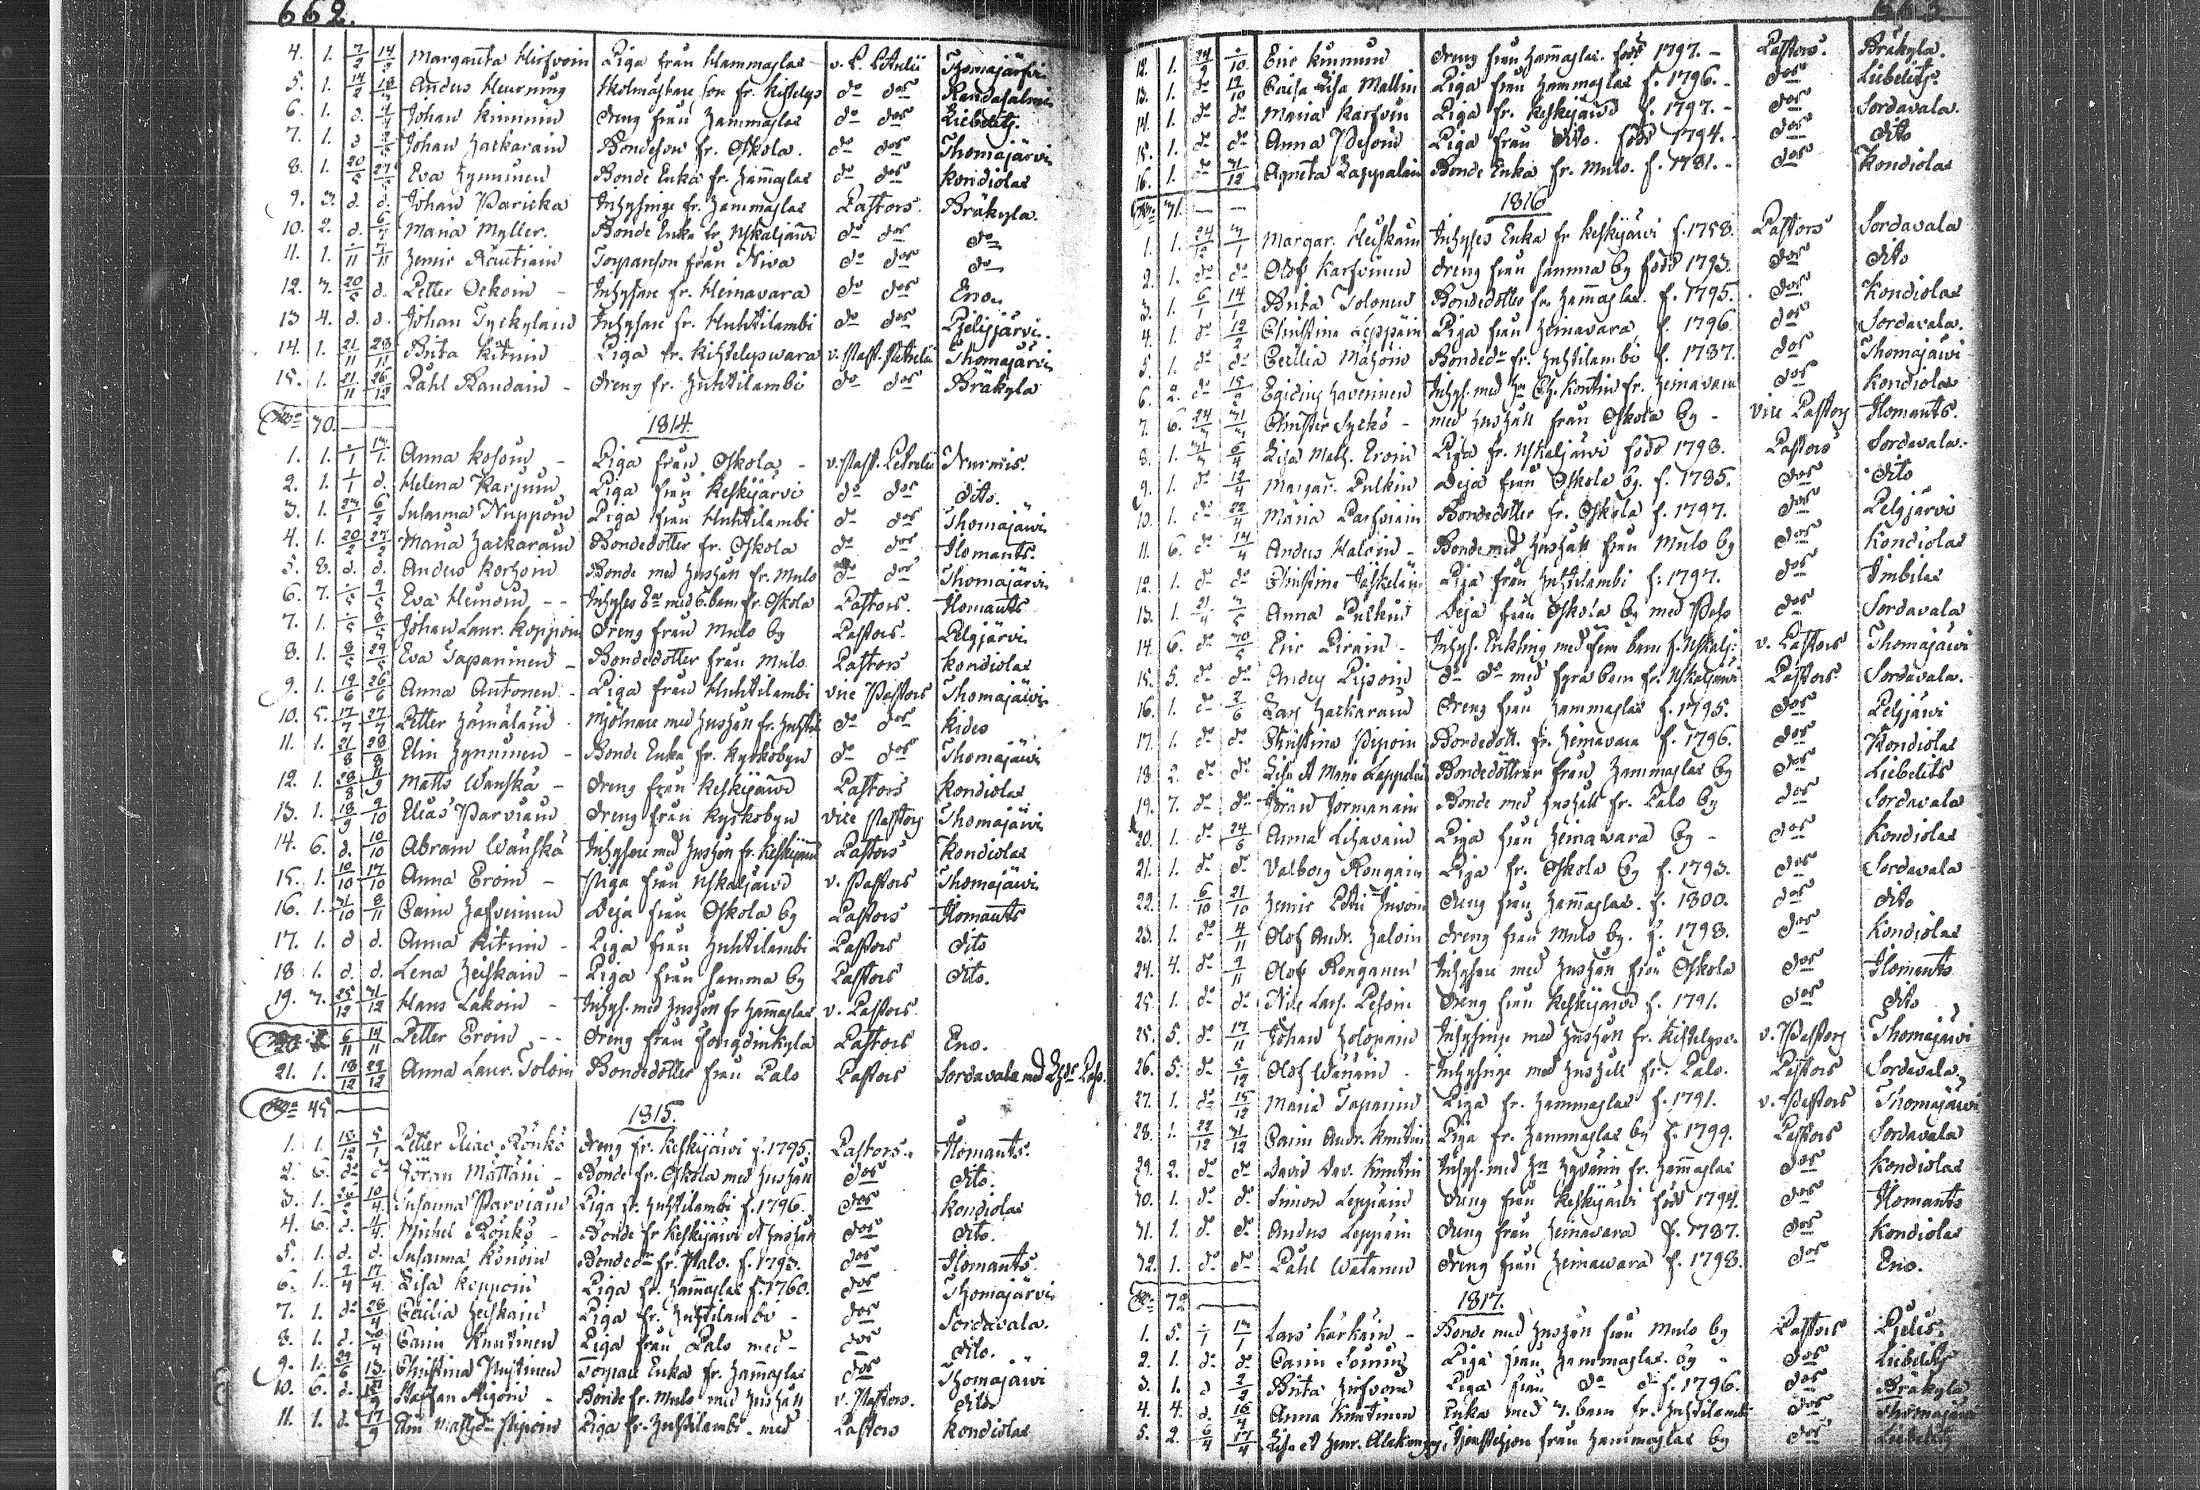 662.
4. 1. 7/2 14/2 Margareta Hirfvoin Piga från Hammaslax v. P. Thomajärfvi
5. 1. 14/2 Anders Heurning Skolmästare son fr. do dos Randasalmi
6. 1. d. Johan Kinnunen dreng från Hammaslax do dos Liebelitz.
7. 1. d. Johan Hackarain Bondeson fr. Oskola. do dos Thomajärvi
8. 1. 20/5 27/5 Eva Hynninen Bonde Enka fr. Hamaslax do dos Kondiolax
9. 3. d. d. Johan Paricka Inhysinge fr. Hammaslax Pastors. Bräkyla.
10. 2. d. Maria Myller. Bonde Enka fr. Uskaljärvi do dos do
11. 1. Henric Rautiain Torpareson från Niva do dos do
12. 3. 20/5 d. Petter Ockoin - Inhysare fr. Heinavara do dos Eno.
13 4. d. d. Johan Tyckylain Inhysare fr. Huhtilambi do dos Pjelisjärvi.
14. 1. 21/11 28/11 Brita Kitunin Piga fr. Kihtelyswara v. Past. Thomajärvi
15. 1. 21/11 26/12 Påhl Randain - dreng fr. Huhtilambi do dos Bräkyla
Sma 30. 1814.
1. 1. Anna Kosoin - Piga från Oskola - v. Past. Nurmis.
2. 1. 1/1 d. Helena Karsuin Piga från Keskijärvi do dos dito.
3. 1. 27/1 6/2 Susanna Nuppoin Piga från Huhtilambi do dos Thomajärvi
4. 1. 20/2 27/2 Maria Hackarain Bondedotter fr. Oskola do dos Ilomants.
5. 8. d. d. Anders Korhoin Bonde med Hushåll fr. Mulo do dos Thomajärvi
6. 7. Eva Heinoin - - Inhyses med 6. barn fr. Oskola Pastors. Ilomants
7. 1. Johan Laur. Koppoin dreng från Mulo by Pastors. Pelgjärvi
8. 1. 8/5 29/5 Eva Tapaninen - Bondedotter från Mulo Pastors Kondiolax
9. 1. 19/6 26/6 Anna Antonen - Piga från Huhtilambi vice Pastors Thomajärvi
10. 5. 17/7 27/7 Petter Hämäläin Mjölnare med Hushåll fr. do dos Kides
11. 1. 21/8 28/8 Elin Hynninen - Bonde Enka fr. Kyrkobyn do dos Thomajärvi
12. 1. 28/8 Matts Wanska - dreng från Keskijärvi Pastors Kondiolax
13. 1. 18/9 9/10 Elias Parviain dreng från Kyrkobyn vice Pastors Thomajärvi
14. 6. d. 10/10 Abram Wanska Inhysare med Hushåll fr. Keskijärvi Pastors Kondiolax
15. 1. 10/10 17/10 Anna Eroin - Piga från Uskaljärvi v. Pastors Thomajärvi
16. 1. 31/10 8/11 Carin Hafveinen Deja från Oskola by Pastors Ilomants
17. 1. d d. Anna Kitunin - Piga från Huhtilambi Pastors dito
18 1. d. d. Lena Heiskain - Piga från samma by Pastors dito.
19. 3. 25/12 31/12 Hans Lakoin - Inhys. med Hushåll fr Hamaslax v. Pastors
20. 6/11 14/11 Petter Eroin - - dreng från Pastors Eno.
21. 1. 18/12 29/12 Anna Laur. Toloin Bondedotter från Palo Pastors Sordavala med
Sma 45 1815.
1. 1. 18/12 5/1 Petter Eliae Rönkö dreng fr. Keskijärvi f. 1795. Pastors. Ilomants.
2. 6. do Göran Mattain - Bonde fr. Oskola med Hushåll dos dito.
3. 1. Susanna Parviain Piga fr. Huhtilambi f. 1796. dos Kondiolax
4. 6. d. Michel Rönkö - Bonde fr Keskijärvi Hushåll dos dito.
5. 1. d. d. Susanna Konoin fr. Palo. f. 1793. dos Ilomants.
6. 1. 17/4 Lisa Koppoin Piga fr. Hamaslax f. 1760. dos Thomajärvi
7. 1. do 28/4 Cecilia Heiskain Piga fr. Huhtilambi - dos Sordavala.
8. 1. d. Carin Knutinen Piga från Palo med - dos dito.
9. 1. Christina Mustinen Torpare Enka fr. Hamaslax dos Thomajärvi
10. 6. d. Staffan - Bonde fr. Mulo med Hushåll v. Pastors. dito
11. 1. d. 17/9 Piga fr. Huhtilambi. med Pastors Kondiolax
12. 1. Eric Kinnunen dreng från Hammaslax. född 1797. - Pastors. Bräkyla.
13. 1. do Caisa Lisa Mallin Piga från Hammaslax f. 1796. - dos Liebelitz.
14. 1. do do Maria Karfvin Piga fr. Keskijärvi f. 1797. - dos Sordavala.
15. 1. do do Anna Pesoin Piga från dito. född 1794. - dos dito
16. 1. do 31/12 Agneta Lappalain Bonde Enka fr. Mulo. f. 1781. - dos Kondiolax
Sma 31. 1816
1. 1. Margar. Heiskain Inhyses Enka fr Keskijärvi f. 1758. Pastors Sordavala
2. 1. do do Olof Karfvinen dreng från samma by född 1793. dos dito
3. 1. 6/1 14/1 Brita Tolonen Bondedotter fr. Hamaslax. f. 1795. dos Kondiolax
4. 1. do Christina Leppäin Piga från Heinavara f. 1796. dos Sordavala.
5. 1. do do Cecilia Mahoin fr. Huhtilambi f. 1787. dos Thomajärvi
6. 2. do Egidius Haveninen Inhys. med fr. Heinavara dos Kondiola
7. 6. Christer Syckö - med Hushåll från Oskola by - vice Pastors Ilomants.
8. 1. Lisa Math. Eroin Piga fr. Uskaljärvi född 1798. Pastors Sordavala.
9. 1. do 12/4 Margar. Pulkin Deja från Oskola by. f. 1785. dos dito
10. 1. do 22/4 Maria Parfviain Bondedotter fr. Oskola f. 1797. dos Pelgjärvi
11. 6. do 14/4 Anders Haloin - Bonde med Hushåll från Mulo by dos Kondiolax
12. 1. do do Christina Jäskeläin Piga från Huhtilambi f. 1797. dos Imbilax
13. 1. 21/4 Anna Pulkin Deja från Oskola by med dos Sordavala
14. 6. do Eric Pirain - Inhys. Enkling med fem barn f. Uskalj: v. Pastors Thomajärvi
15. 5. do do Anders Piipoin do do med fyra barn fr. Uskaljärvi Pastors Sordavala.
16. 1. do Lars Hackarain dreng från Hammaslax f. 1795. dos Pelgjärvi
17. 1. do do Christina Piipoin Bondedott. fr. Heinavara f. 1796. dos Kondiolax
18 2. do do Lisa et Maria Lappalain Bondedöttrar från Hammaslax by dos Liebelits
19. 7. do do Jöran Jormanain Bonde med Hushåll fr. Palo by dos Sordavala
20. 1. do 24/6 Anna Lihavain Piga från Heinavara by - dos Kondiolax
21. 1. do do Valborg Rongain Piga fr. Oskola by f. 1793. dos Sordavala
22. 1. 6/10 21/10 Henric dreng från Hamaslax. f. 1800. dos dito
23. 1. do 4/11 Olof Andr. Haloin dreng från Mulo by. f. 1798. dos Kondiolax
24. 4. do Olof Ronganen Inhysare med Hushåll från Oskola dos Ilomants
25. 1. do do Nils Lars. Pesoin dreng från Keskijärvi f. 1791. dos dito
25. 5. do 17/11 Johan Holopain Inhysinge med Hushåll fr. v. Pastors Thomajärvi
26. 5. do 5/12 Olof Wänäin - Inhysinge med Hushåll fr. Palo. Pastors Sordavala.
27. 1. do 15/12 Maria Tapanin Piga fr. Hammaslax f. 1791. v. Pastors Thomajärvi
28. 1. 22/12 31/12 Carin Andr. Knutin Piga fr. Hammaslax by f. 1799. Pastors Sordavala
29. 2. do do David Dav. Knutin Inhys. med fr. Hamaslax dos Kondiolax
30. 1. do do Simon Leppäin dreng från Keskijärvi född 1794. dos Ilomants
31. 1. do do Anders Leppäin dreng från Heinavara f. 1787. dos Kondiolax
32. 1. do do Påhl Watanen dreng från Heinawara f. 1798. dos Eno.
Sma 72 1817.
1. 5. Lars Kärkäin - Bonde med Hushåll från Mulo by Pastors Pjelis.
2. 1. do do Carin Piga från Hammaslax. by - dos Liebelitz
3. 1. d Brita Hirfvoin Piga från do do f. 1796. dos Bräkyla
4. 4. d. 16/4 Anna Knutinen Enka med 3. barn fr. Huhtilambi dos Thomajärvi
5. 2. 6/4 17/4 Lisa et Henr. från Hammaslax by dos Liebelitz